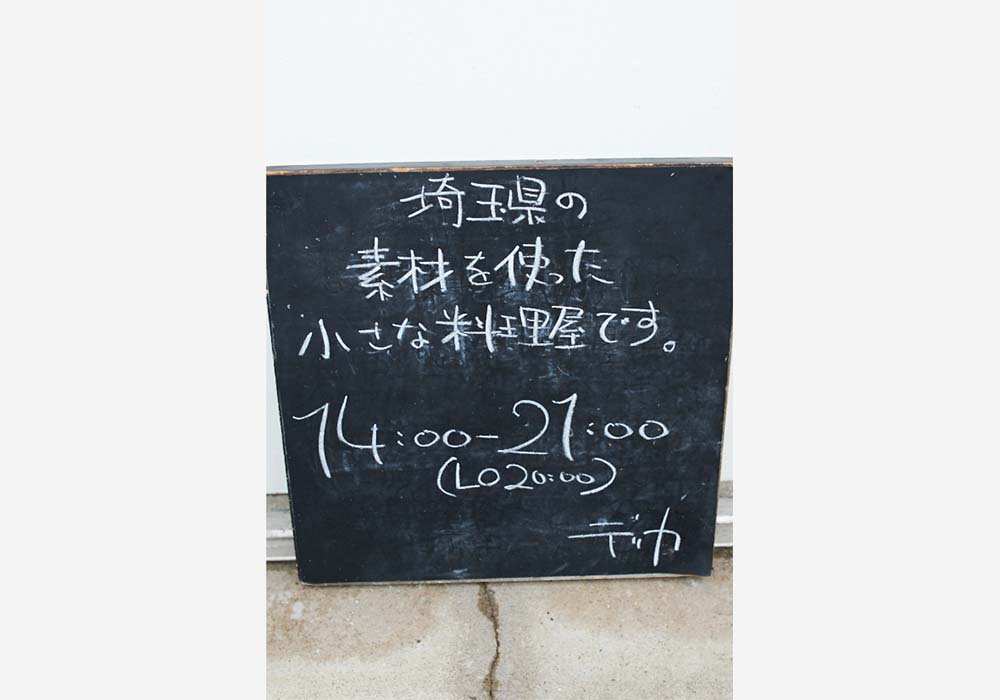 埼玉県の
素材を使った
小さな料理屋です。
14:00-21:00
(LO20:00)
デッカ